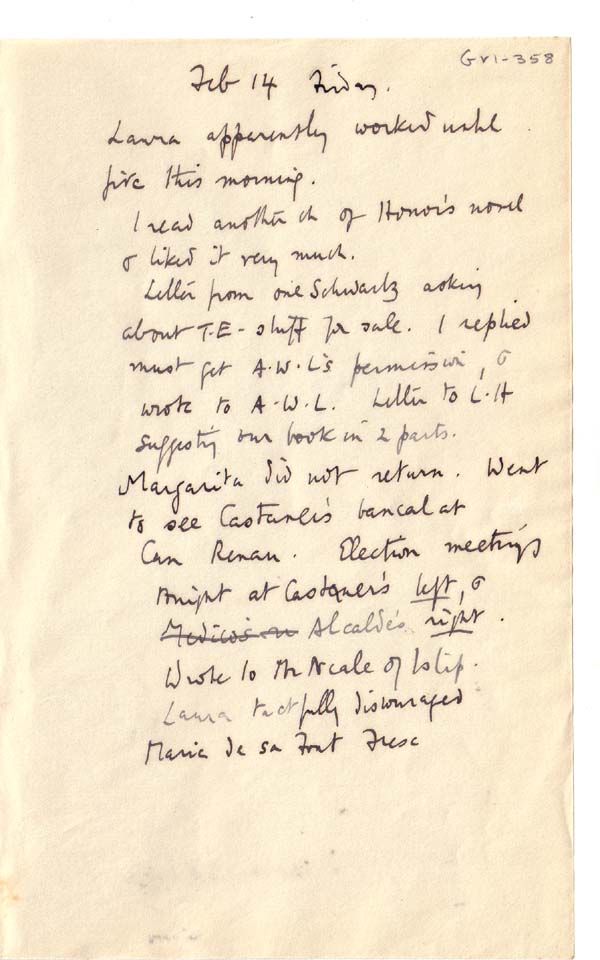 GV1-358
Feb 14 Friday.
Laura apparently worked until
five this morning.
I read another ch of Honor's novel
& liked it very much.
Letter from one Schwartz asking
about T.E- stuff for sale. I replied
must get A.W.L's permission, &
wrote to A.W.L. Letter to L.H
suggesting our book in 2 parts.
Margarita did not return. Went
to see Castaner's bancal at
Can Renau. Election meetings
tonight at Castaner's left, &
Medico's Alcalde's right.
Wrote to Mr Neale of Islip.
Laura tactfully discouraged
Maria de sa Font Fresc